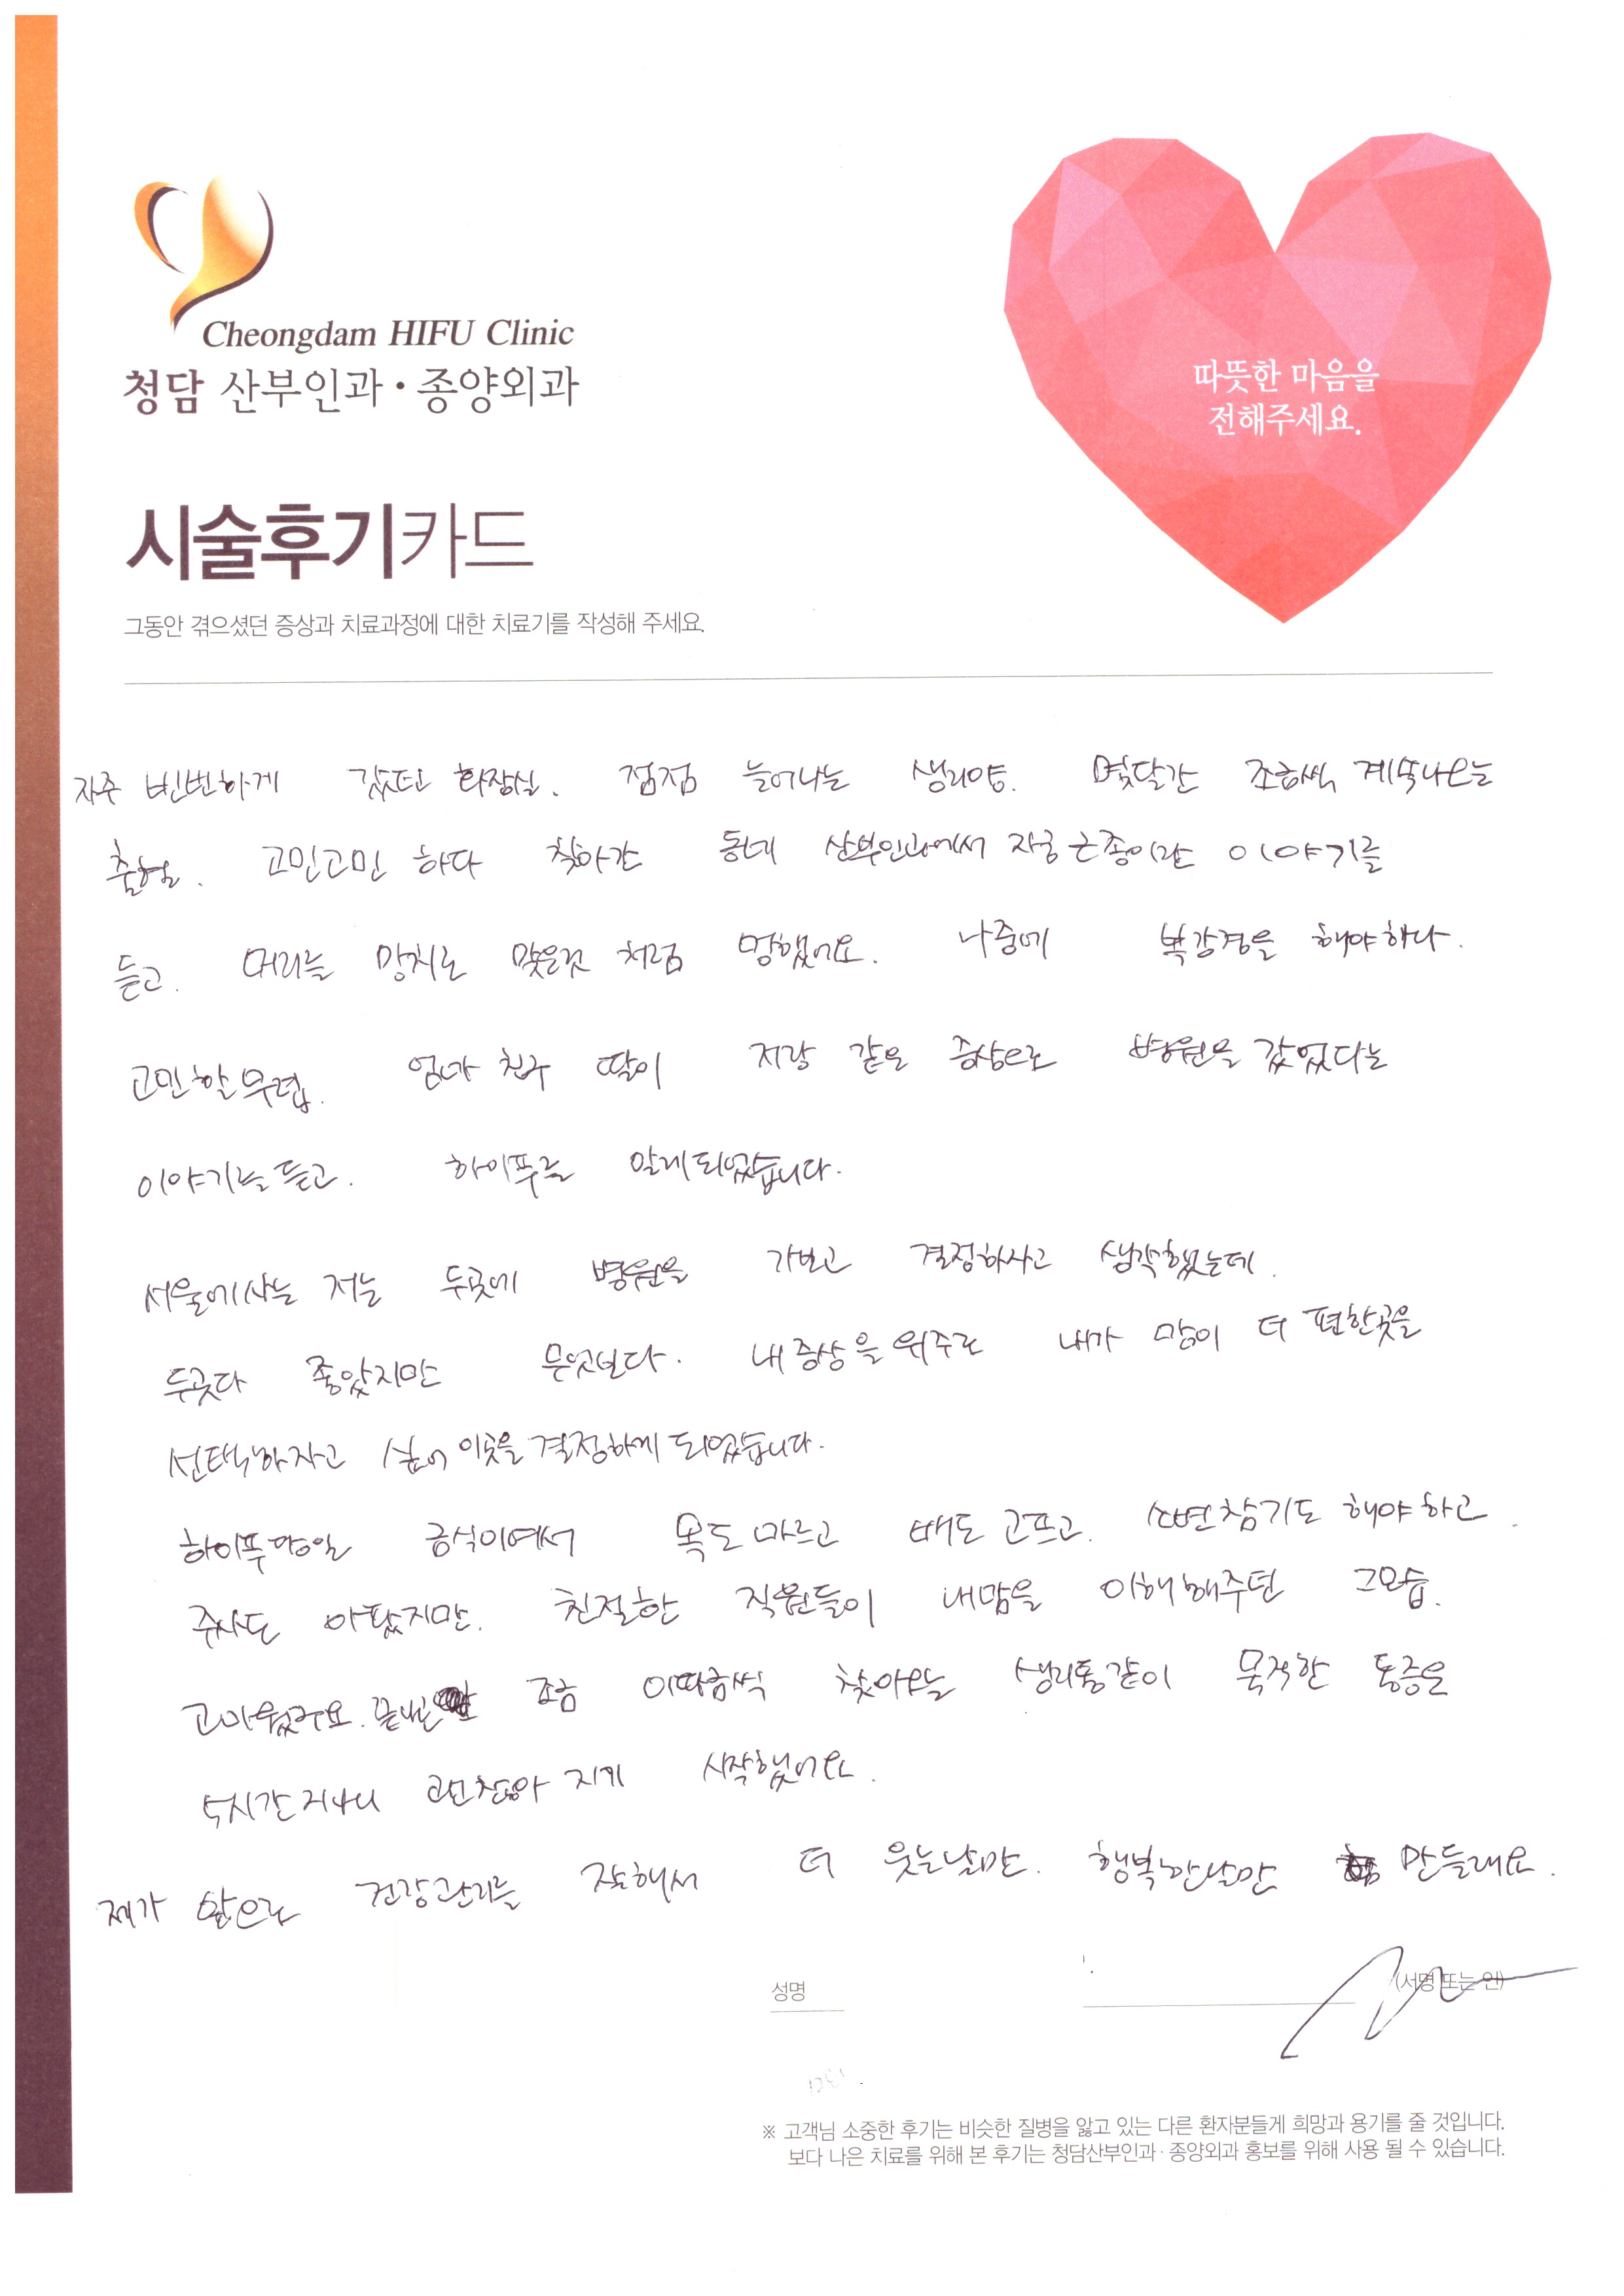 Cheongdam HIFU Clinic
청담 산부인과·종양외과
따뜻한 마음을
전해주세요.
시술후기카드
그동안 겪으셨던 증상과 치료과정에 대한 치료기를 작성해 주세요.
자주 빈번하게 갔던 화장실. 점점 늘어나는 생리양. 몇달간 조금씩 계속나오는
출혈. 고민고민 하다 찾아간 동네 산부인과에서 자궁근종이란 이야기를
듣고. 머리를 망치로 맞은것 처럼 멍했어요. 나중에 복강경을 해야하다.
고민할무렵. 엄마 친구 딸이 저랑 같은 증상으로 병원을 갔었다는
이야기를 듣고. 하이푸를 알게되었습니다.
서울에사는 저는 두곳에 병원을 가보고 결정하자고 생각했는데.
두곳다 좋았지만 무엇보다. 내증상을 위주로 내가 맘이 더 편한곳을
선택하자고 싶어 이곳을 결정하게 되었습니다.
하이푸당일 금식이여서 목도 마르고 배도 고프고. 소변참기도 해야하고.
주사도 아팠지만. 친절한 직원들이 내맘을 이해해주던 그모습.
고마웠구요. 끝난 조금 이따금씩 찾아오는 생리통같이 묵직한 통증은
5시간지나니 괜찮아 지기 시작했어요.
제가 앞으로 건강관리를 잘해서 더 웃는날만. 행복한날만 만들래요.
성명
(서명 또는 인)
※ 고객님 소중한 후기는 비슷한 질병을 앓고 있는 다른 환자분들게 희망과 용기를 줄 것입니다.
보다 나은 치료를 위해 본 후기는 청담산부인과·종양외과 홍보를 위해 사용 될 수 있습니다.